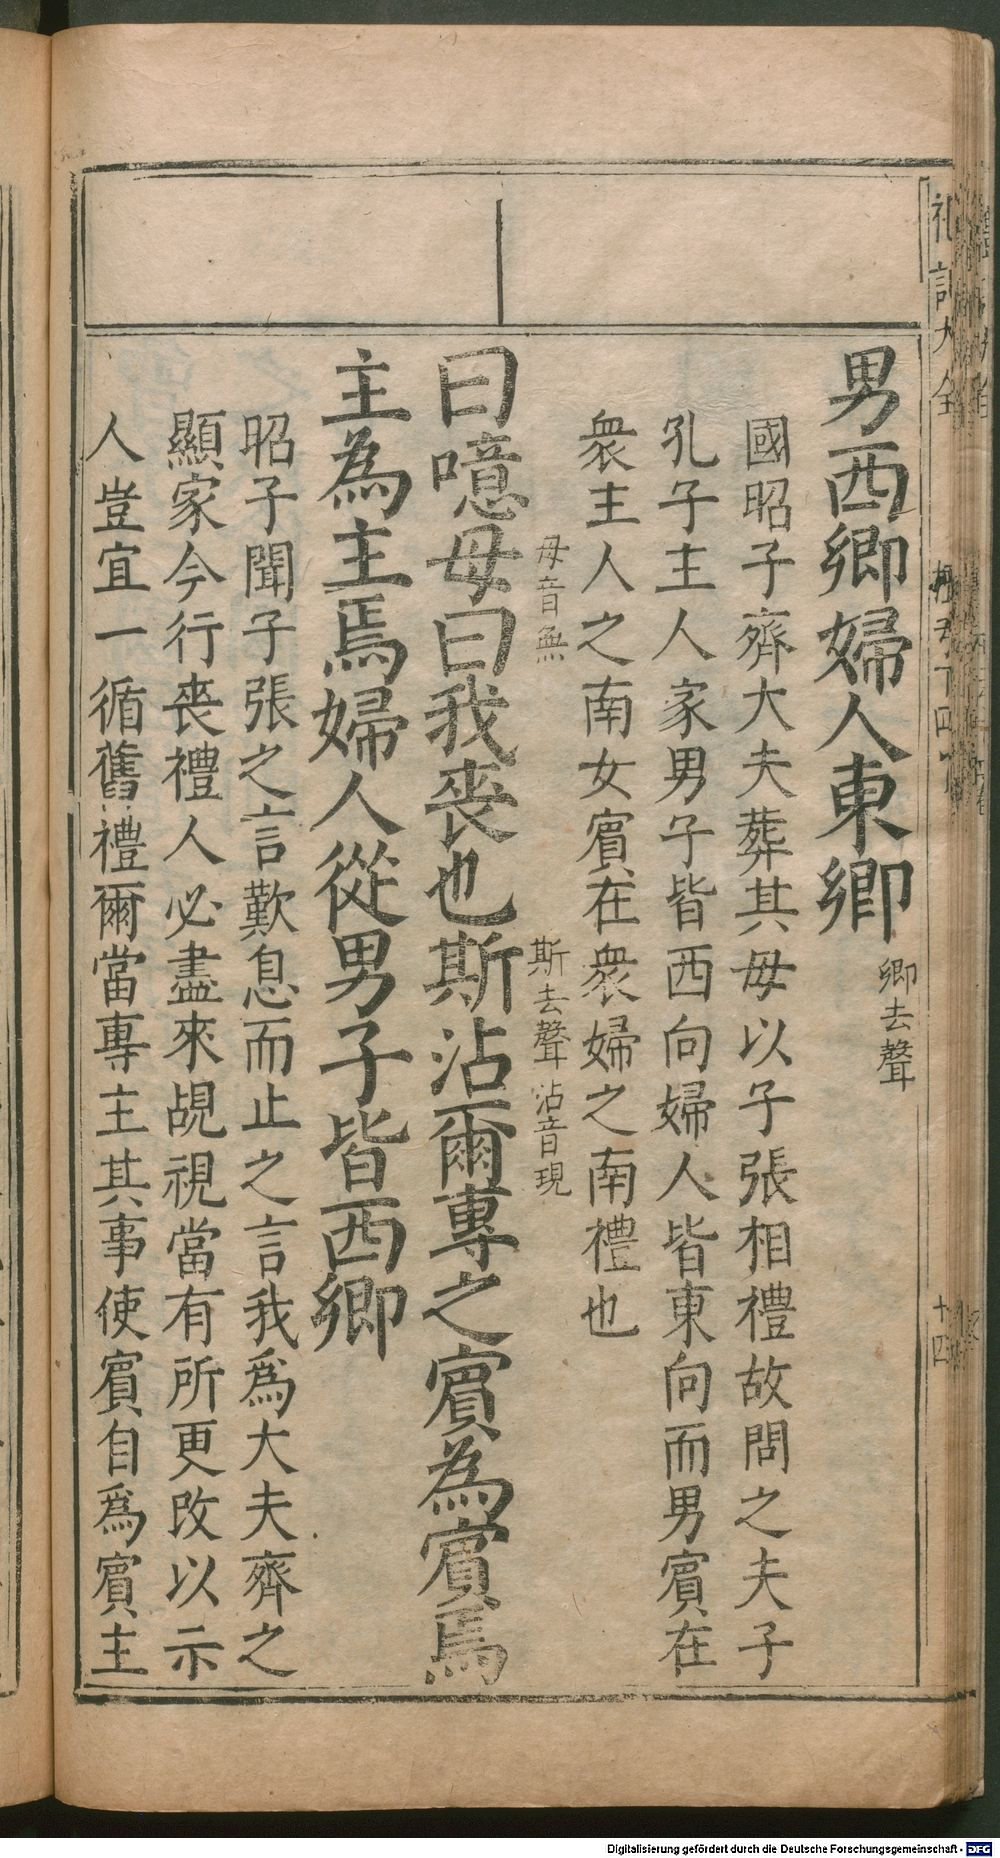 男西鄉婦人東鄉
鄉去聲
國昭子齊大夫葬其母以子張相禮故問之夫子
孔子主人家男子皆西向婦人皆東向而男賓在
衆主人之南女賓在衆婦之南禮也
曰噫毋曰我喪也斯沾爾專之賓為賓焉
毋音無
斯去聲沾音覘
主為主焉婦人從男子皆西鄉
昭子聞子張之言歎息而止之言我爲大夫齊之
顯家今行喪禮人必盡來覘視當有所更改以示
人豈宜一循舊禮爾當專主其事使賓自爲賓主
十四
Digitalisierung gefördert durch die Deutsche Forschungsgemeinschaft - DFG